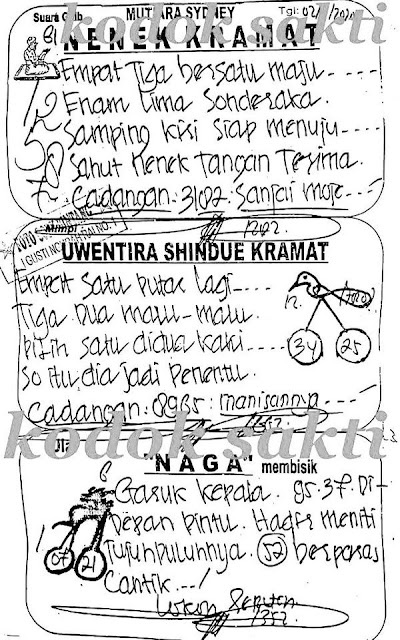 kodok sakti
Suara Gaib MUTIARA SYDNEY Tgl: 02/ /2020
NENEK KRAMAT
Empat Tiga bersatu maju----
Enam Lima Sonderaka.
Samping kisi siap menuju----
Sahut Nenek Tangan Terima.
Cadangan: 3102. Sanjai moje---
Mimpi
2020
I GUSTI NGURAH RAI NO. 1
UWENTIRA SHINDUE KRAMAT
Empat satu putar lagi----
Tiga Dua malu-malu.
pilih satu didua kaki----
so itu dia jadi penentu.
Cadangan: 8965: manisannya---
34 25
kodok sakti
"NAGA" membisik
Garuk kepala. 95.37. Di-
Depan pintu. Hadir meniti
Tujuhpuluhnya. 52 berparas
Cantik.---!
07 21